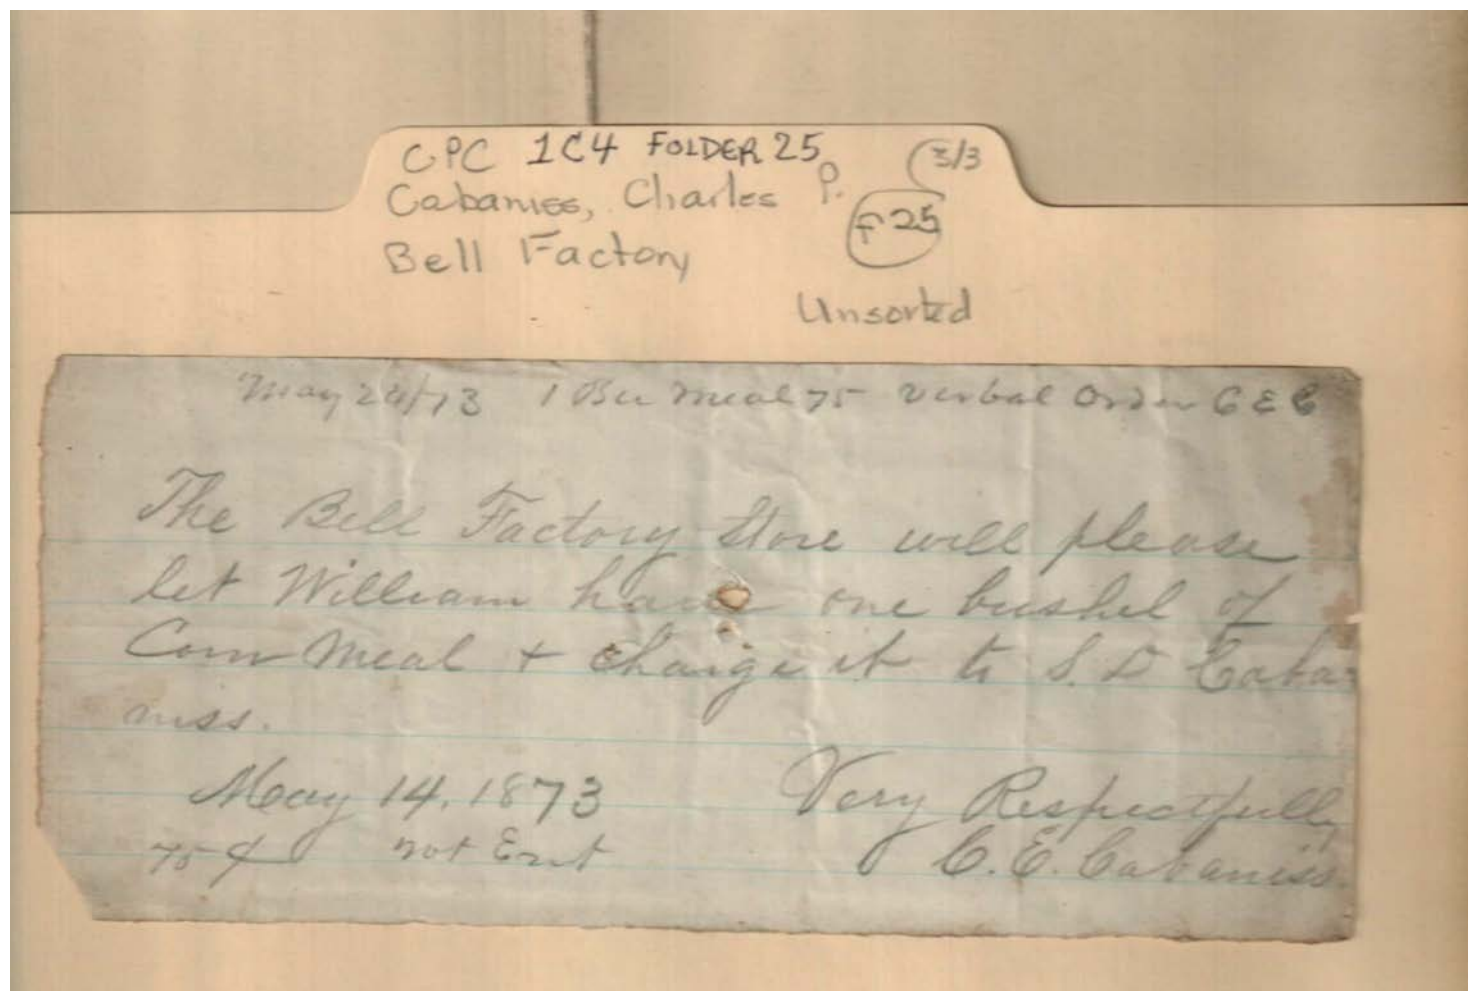 CPC 1C4 FOLDER 25 3/3
Cabaniss, Charles P. F 25
Bell Factory
Unsorted
May 24/73 1 Bu Meal 75 Verbal Order C E C
The Bell Factory Store will please
let William have one bushel of
Corn Meal + charge it to S. D Caba-
niss.
May 14, 1873 Very Respectfully
75 ¢ not Ent C. E. Cabaniss.